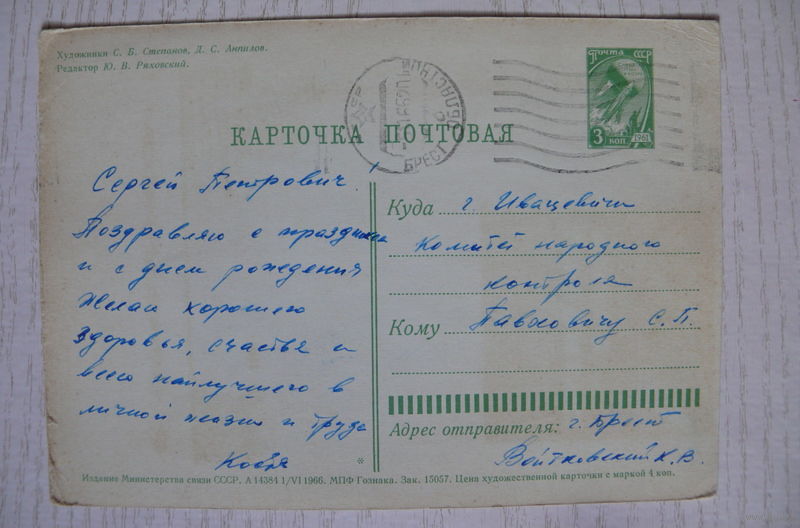 Художники С. Б. Степанов, Д. С. Анпилов.
Редактор Ю. В. Ряховский.
ПОЧТА СССР
3 КОП
1961
БРЕСТ
КАРТОЧКА ПОЧТОВАЯ
Сергей Петрович!
Поздравляю с праздником
и с днем рождения
Желаю хорошего
здоровья, счастья и
всего наилучшего в
личной жизни и труде
Куда г Ивацевичи
Комитет народного
контроля
Кому Павловичу С. П.
Адрес отправителя: г. Брест
Войтковский К. В.
*
Издание Министерства связи СССР. А 14384 1/VI 1966. МПФ Гознака. Зак. 15057. Цена художественной карточки с маркой 4 коп.